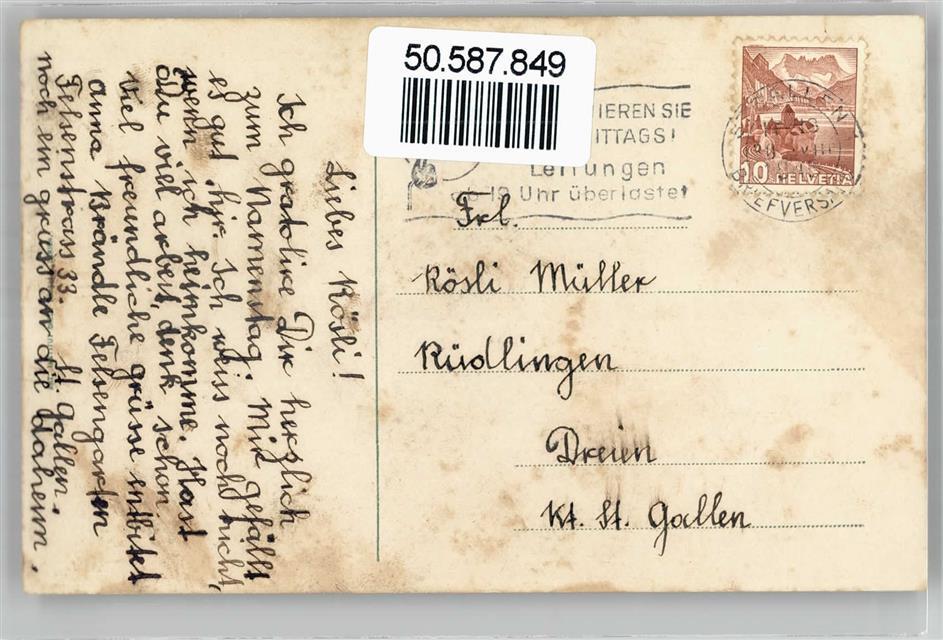 50.587.849
IEREN SIE
ITTAGS!
Leitungen
19 Uhr überlastet
10 HELVETIA
BRIEFVERS.
Frl.
Rösli Müller
Rüdlingen
Dreien
Kt. St. Gallen
Liebes Rösli!
Ich gratolire Dir herzlich
zum Namenstag. Mir gefällt
es gut hir. Ich weiss noch nicht,
wenn ich heimkomme. Hast
Du viel arbeit, denk schon
Viel freundliche grüsse entbitet
Anna Brändle Felsengarten
Felsenstrass 33. St. Gallen.
noch ein gruss an die daheim.